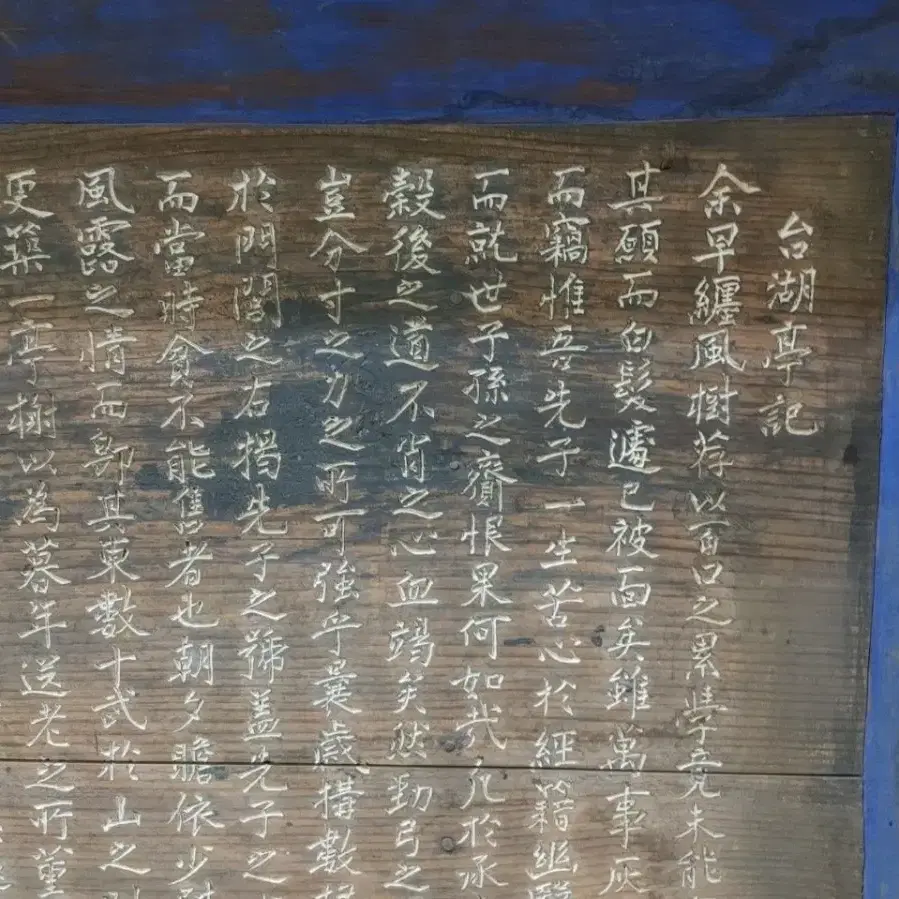 台湖亭記
余早纏風樹荐以百口之累學竟未能
其願而白髮遽已被面矣雖萬事灰
而竊惟吾先子一生苦心於經籍幽
而就世子孫之齎恨果何如哉凡於承
穀後之道不肖之心血竭矣然勤弓之
豈分寸之力之所可強乎曩歲搆數
於門閭之右揭先子之號盖先子之
而當時貪不能售者也朝夕瞻依少
風露之情而鄔其東數十武於山之
更築一亭榭以為暮年送老之所董